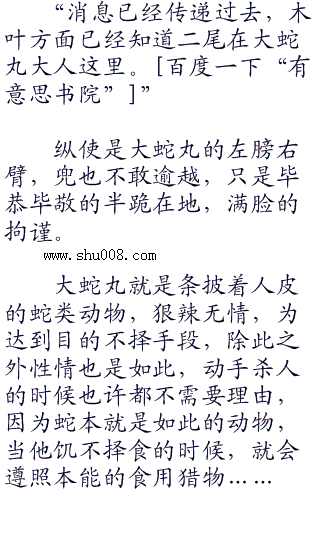 “消息已经传递过去，木
叶方面已经知道二尾在大蛇
丸大人这里。[百度一下“有
意思书院”]”
纵使是大蛇丸的左膀右
臂，兜也不敢逾越，只是毕
恭毕敬的半跪在地，满脸的
拘谨。
www.shu008.com
大蛇丸就是条披着人皮
的蛇类动物，狠辣无情，为
达到目的不择手段，除此之
外性情也是如此，动手杀人
的时候也许都不需要理由，
因为蛇本就是如此的动物，
当他饥不择食的时候，就会
遵照本能的食用猎物……